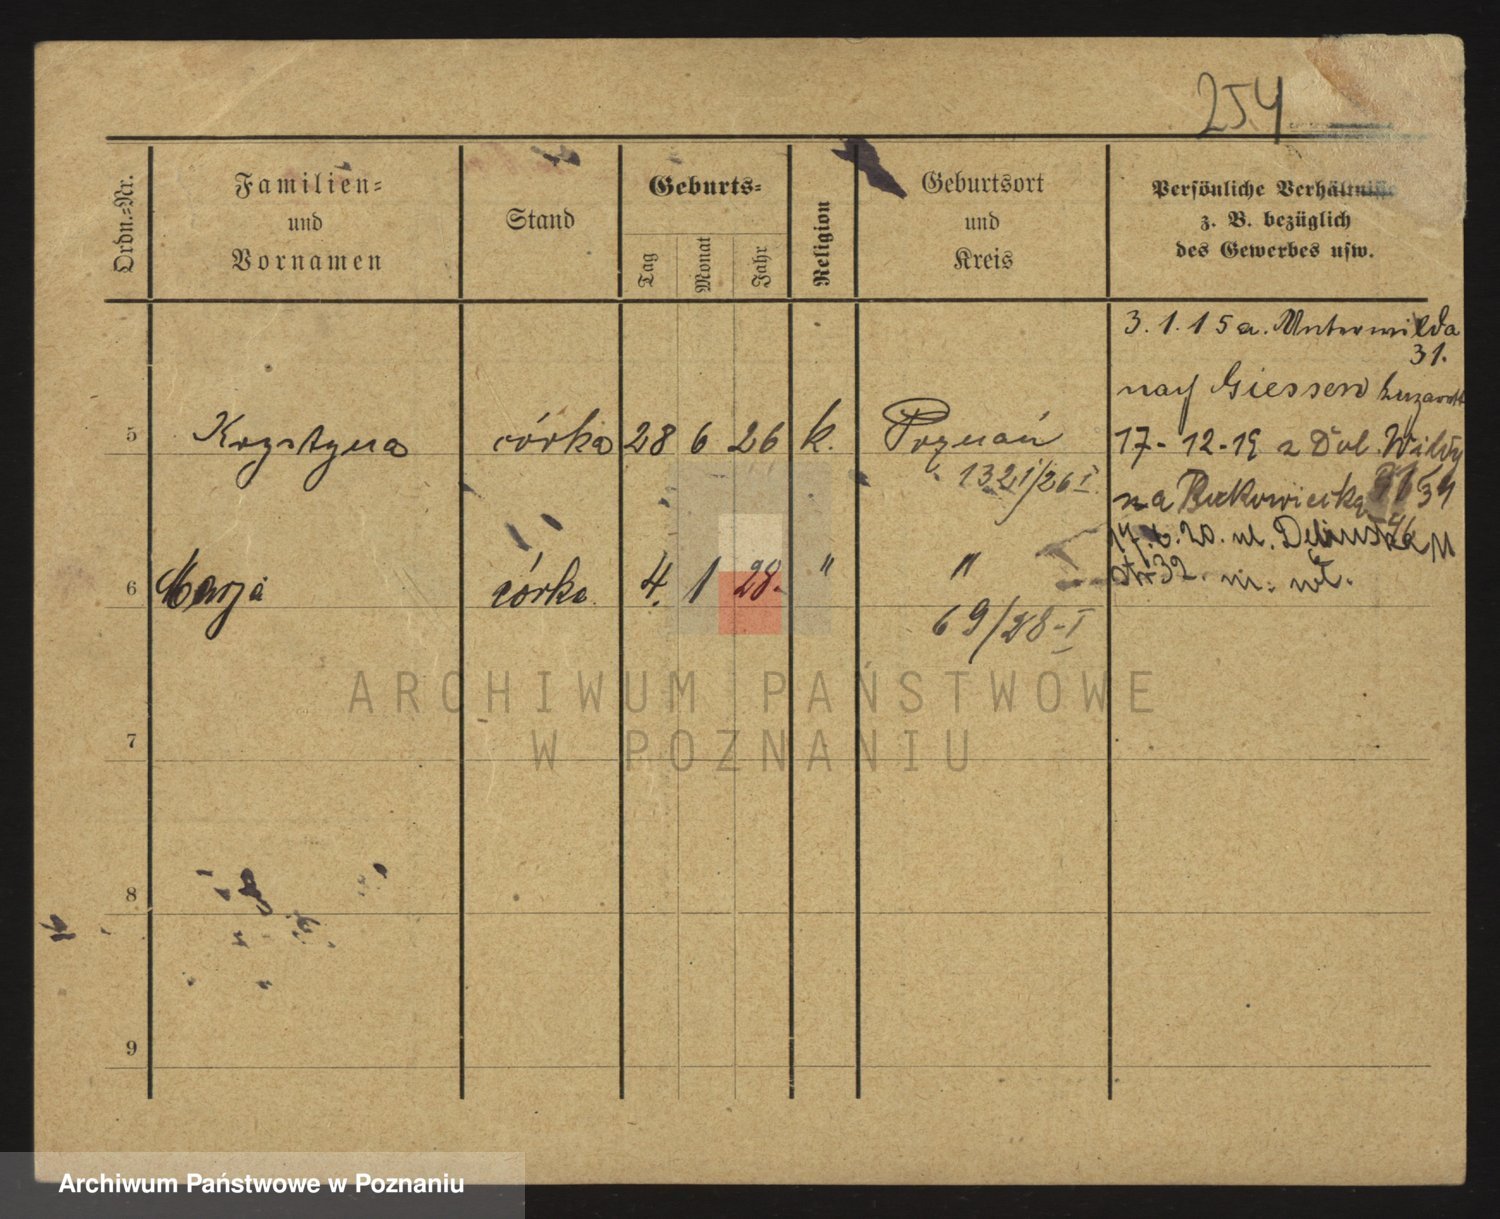 254
Ordn.=Nr.
Familien=
und
Vornamen
Stand
Geburts=
Tag
Monat
Jahr
Religion
Geburtsort
und
Kreis
Persönliche Verhältnisse
z. B. bezüglich
des Gewerbes usw.
3.1.15 a. Unterwilda
31.
nach Giessen
5 Krystyna córka 28 6 26 k. Poznań
1321/26 I
17-12-19 z Dol. Wildy
na Bukowiecką
17.6.20. ul.
6 Marja córka 4. 1 28. " "
str 32. m. wł.
69/28-I
7
8
9
ARCHIWUM PAŃSTWOWE
W POZNANIU
Archiwum Państwowe w Poznaniu